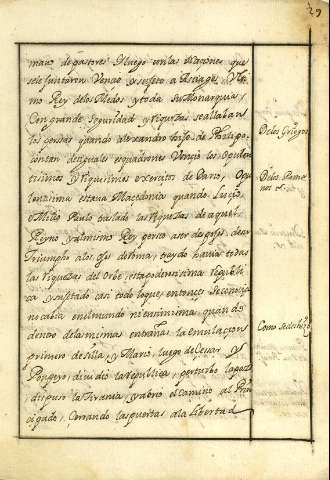 29
mano de pastores. Y luego con las naciones que
se le juntaron Vencio y sujeto a Astiages Vlti
mo Rey de los Medos y toda su Monarquia,
Con grande seguridad y riqueza se allaban
los persas quando Alexandro hijo de Philipo
con tan desiguales esquadrones Vencio los opulen
tisimos y riquisimos exercitos de Dario, Opu
lentisima estaua Macedonia quando Lucio
emilio Paulo traslado las riquezas de aquel
Reyno y al mismo Rey perseo a ser despojo de su
Triumpho a los ojos de Roma, trayda hauia todas
las riquezas del Orbe esta poderosisima republi
ca y sujetado casi todo lo que entonces se conocia
no cabia en el mundo ni en si misma, quando
dentro de la misma entraña la emulacion
primero de Silla, y Mario, luego de Cesar, y
Pompeyo, diuidio la republica, perturbo la paz
dispuso la tirania y abrio el camino al Prin
cipado, Cerrando las puertas a la libertad
De los Griegos
De los Roma
nos
Como se deshizo